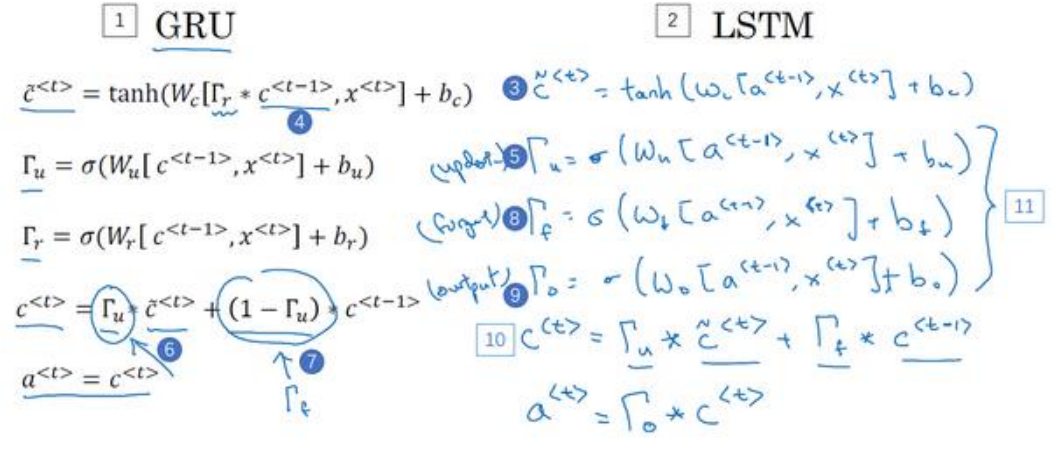 1 GRU
c̃^{<t>} = tanh(W_c[Γ_r * c^{<t-1>}, x^{<t>}] + b_c)
4
Γ_u = σ(W_u[ c^{<t-1>}, x^{<t>}] + b_u)
Γ_r = σ(W_r[ c^{<t-1>}, x^{<t>}] + b_r)
c^{<t>} = Γ_u * c̃^{<t>} + (1 − Γ_u) * c^{<t-1>}
6 7
a^{<t>} = c^{<t>}
Γ_f
2 LSTM
3 c̃^{<t>} = tanh(W_c[a^{<t-1>}, x^{<t>}] + b_c)
(update) 5 Γ_u = σ(W_u[a^{<t-1>}, x^{<t>}] + b_u)
(forget) 8 Γ_f = σ(W_f[a^{<t-1>}, x^{<t>}] + b_f)
11
(output) 9 Γ_o = σ(W_o[a^{<t-1>}, x^{<t>}] + b_o)
10 c^{<t>} = Γ_u * c̃^{<t>} + Γ_f * c^{<t-1>}
a^{<t>} = Γ_o * c^{<t>}